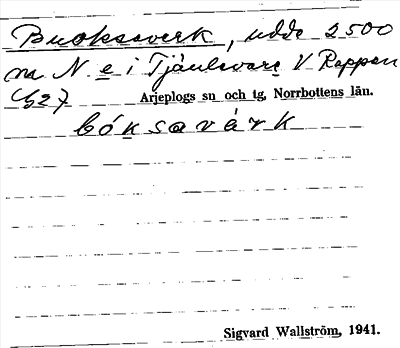 Buokssverk, udde 2500
na N e i Tjåulevare V Rappen
Arjeplogs sn och tg, Norrbottens län.
bóksavárk
Sigvard Wallström, 1941.